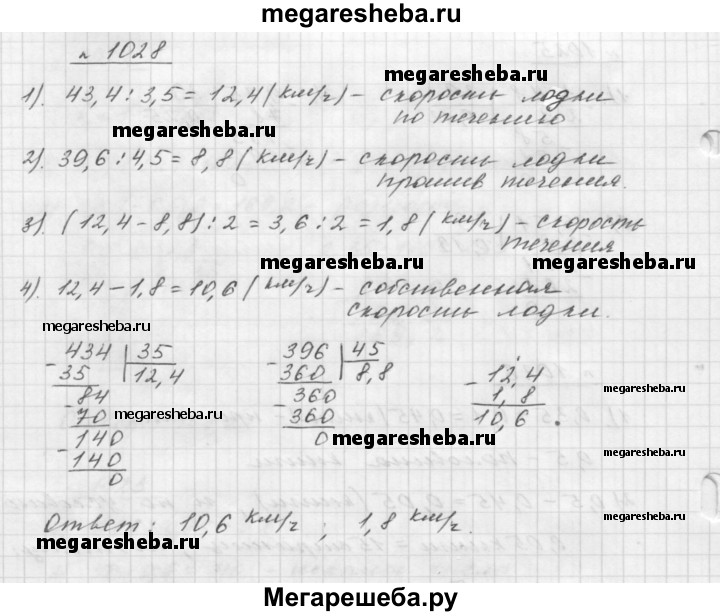 megaresheba.ru
№ 1028
1). 43,4 : 3,5 = 12,4 (км/ч) – скорость лодки
по течению
megaresheba.ru
megaresheba.ru
2). 39,6 : 4,5 = 8,8 (км/ч) – скорость лодки
против течения.
3). (12,4 – 8,8) : 2 = 3,6 : 2 = 1,8 (км/ч) – скорость
течения
megaresheba.ru
megaresheba.ru
4). 12,4 – 1,8 = 10,6 (км/ч) – собственная
скорость лодки.
megaresheba.ru
434 | 35
35 | 12,4
84
70
140
140
0
396 | 45
360 | 8,8
360
360
0
12,4
- 1,8
10,6.
megaresheba.ru
megaresheba.ru
megaresheba.ru
Ответ: 10,6 км/ч ; 1,8 км/ч.
megaresheba.ru
megaresheba.ru
Мегарешеба.ру